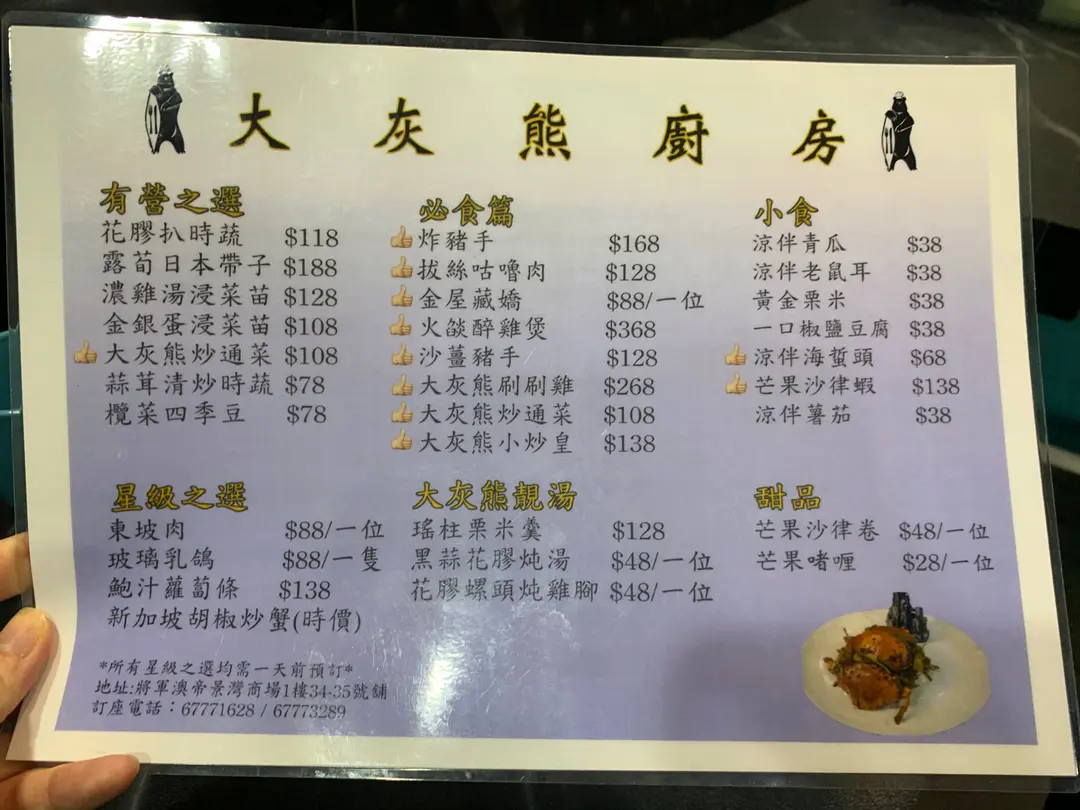 大灰熊廚房
有營之選
花膠扒時蔬 $118
露荀日本帶子 $188
濃雞湯浸菜苗 $128
金銀蛋浸菜苗 $108
大灰熊炒通菜 $108
蒜茸清炒時蔬 $78
欖菜四季豆 $78
必食篇
炸豬手 $168
拔絲咕嚕肉 $128
金屋藏嬌 $88/一位
火燄醉雞煲 $368
沙薑豬手 $128
大灰熊刷刷雞 $268
大灰熊炒通菜 $108
大灰熊小炒皇 $138
小食
涼伴青瓜 $38
涼伴老鼠耳 $38
黃金栗米 $38
一口椒鹽豆腐 $38
涼伴海蜇頭 $68
芒果沙律蝦 $138
涼伴薯茄 $38
星級之選
東坡肉 $88/一位
玻璃乳鴿 $88/一隻
鮑汁蘿蔔條 $138
新加坡胡椒炒蟹(時價)
大灰熊靚湯
瑤柱栗米羹 $128
黑蒜花膠炖湯 $48/一位
花膠螺頭炖雞腳 $48/一位
甜品
芒果沙律卷 $48/一位
芒果啫喱 $28/一位
*所有星級之選均需一天前預訂*
地址:將軍澳帝景灣商場1樓34-35號舖
訂座電話：67771628 / 67773289